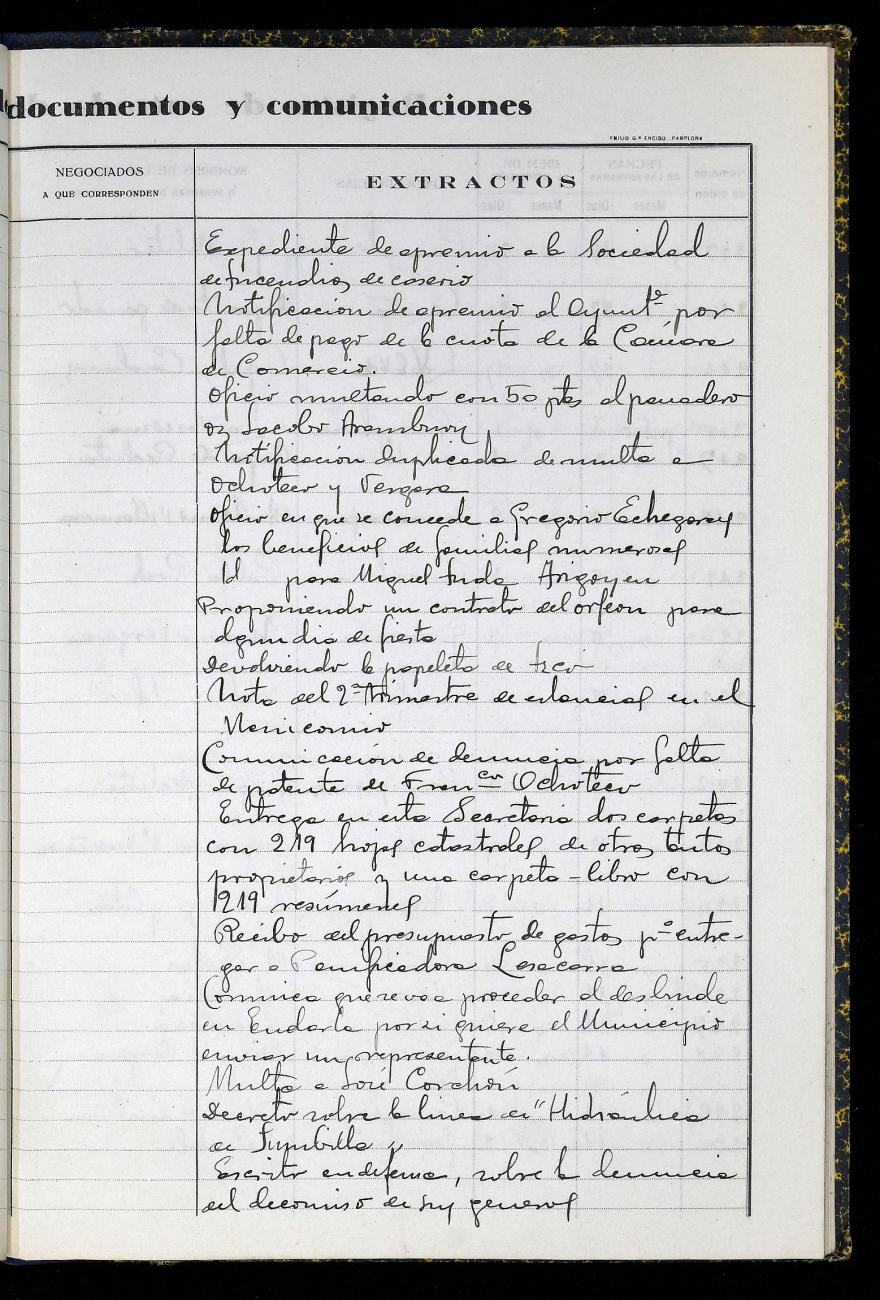 documentos y comunicaciones
EMILIO G.ª ENCISO. PAMPLONA
NEGOCIADOS
A QUE CORRESPONDEN
EXTRACTOS
Expediente de apremio a la Sociedad
de Incendios de caserio
Notificacion de apremio al Ayuntº por
falta de pago de la cuota de la Cámara
de Comercio.
Oficio multando con 50 ptas al panadero
Jacobo Aramburu
Notificación duplicada de multa a
Ochoteco y Vergara
Oficio en que se concede a Gregorio Echegaray
los beneficios de familias numerosas
Id para Miguel Inda Arigoyen
Proponiendo un contrato del orfeon para
algun dia de fiesta
Devolviendo la papeleta de
Nota del 2º trimestre de estancias en el
Manicomio
Comunicación de denuncia por falta
de patente de Franco Ochoteco
Entrega en esta Secretaria dos carpetas
con 219 hojas catastrales de otros tantos
propietarios y una carpeta-libro con
219 resúmenes
Recibo del presupuesto de gastos pº entre-
gar a Panificadora Lesacarra
Comunica que se va a proceder al deslinde
en Endarla por si quiere el Municipio
enviar un representante.
Multa a José Corchón
Decreto sobre la linea de "Hidráulica
de Sumbilla"
Escrito en defensa, sobre la denuncia
del decomiso de sus generos